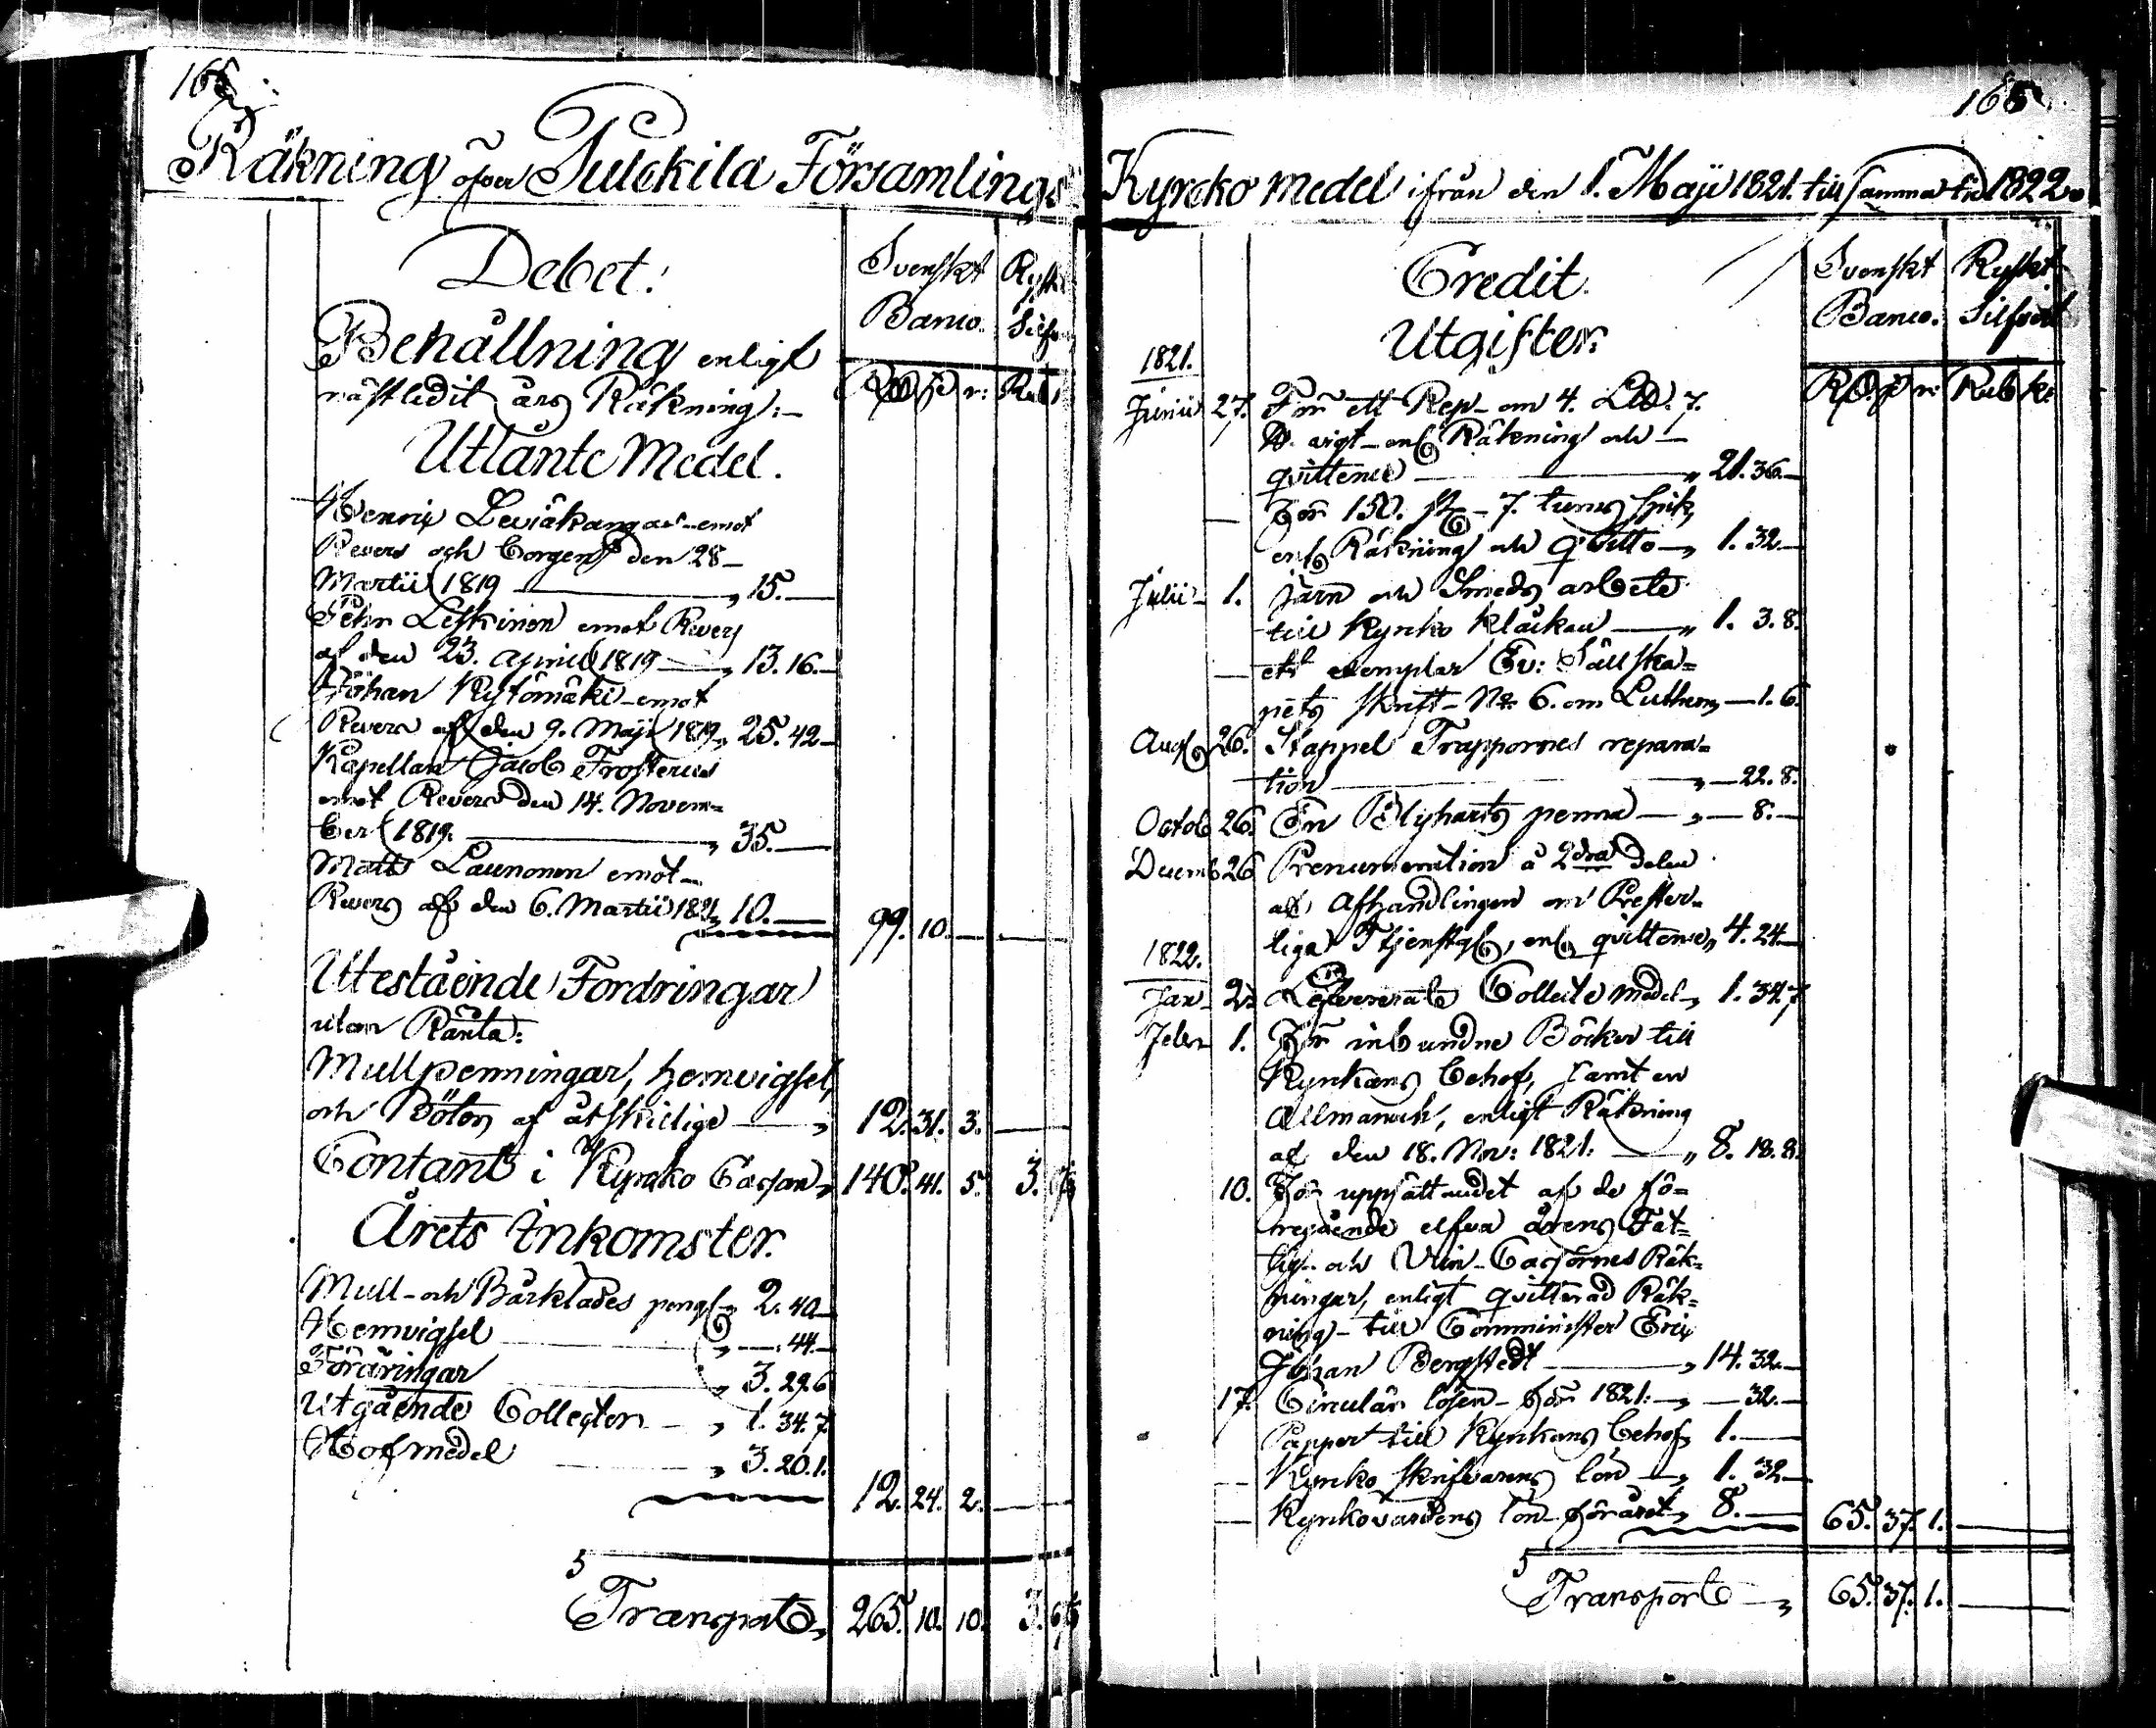 165
Räkning öfver Pulckila Församlings
Debet:
Svenskt Banco.
Ryskt Silfver
Behållning enligt
nästledit års Räkning:
Rd. s. r: Rub
Utlånte Medel.
Henrix Leviäkangas emot
Revers och Borgen den 28
Martii 1819 — „ 15. —
Pehr Leskinen emot Revers
af den 23. April 1819 — „ 13. 16. —
Johan Kytömäki emot
Revers af den 9. Maji 1819 „ 25. 42 —
Kapellan Jacob Frosterus
emot Revers den 14. Novem=
ber 1819. — „ 35. —
Matts Launonen emot
Revers af den 6. Martii 1821 „ 10. —
99. 10. — —
Utestående Fordringar
utan Ränta:
Mullpenningar, hemvigsel,
och Böter af åtskillige — „ 12. 31. 3. —
Contant i Kyrcko Cassan „ 140. 41. 5. 3.
Årets Inkomster.
Mull- och Bårklädes peng. „ 2. 40 —
Hemvigsel — „ — 44. —
Föräringar — „ 3. 29. 6
Utgående Collecter — „ 1. 34. 7.
Hofmedel — „ 3. 20. 1.
12. 24. 2. —
Transport „ 265. 10. 10. 3.
165
Kyrcko medel ifrån den 1. Maji 1821. till samma tid 1822.
Credit.
Svenskt Banco.
Ryskt Silfver
Utgifter:
Rd. s. r: Rub k:
1821.
Junii 27. För ett Rep om 4. LU. 7.
U. vigt enl. Räkning och
qvittence — „ 21. 36. —
— För 150. st. 7. tums spik,
enl. Räkning och qvitto — „ 1. 32 —
Julii 1. järn och Smeds arbete
till Kyrcko klåckan — „ 1. 3. 8.
— ett exemplar Ev: Sällska=
pets skrift No 6. om Luthern, — 1. 6.
Aug. 26. Stappel Trappornes repara=
tion — „ — 22. 8.
Octob 26. En Blyharts penna — „ — 8. —
Decemb 26 Prenumeration å 2dra delen
af Afhandlingen om Prester=
liga Tjenstgl., enl. qvittence „ 4. 24 —
1822.
Jan. 27. Leverat Collecte medel „ 1. 34. 7
Febr 1. För inbundne Böcker till
Kyrkans behof, samt en
Allmanach, enligt Räkning
af den 18. Nov: 1821. — „ 8. 18. 8.
10. För uppsättandet af de fö=
regående elfva årens Fat=
tig- och Vin-Cassornes Räk=
ningar, enligt qvitterad Räk=
ning till Comminister Eric
Johan Bergstedt — „ 14. 32. —
17. Circulär lösen för 1821. — „ — 32. —
Papper till Kyrkans behof, 1. —
— Kyrko skrifvarens lön — „ 1. 32 —
— Kyrkovärdens lön för året „ 8. — 65. 37. 1. —
Transport — „ 65. 37. 1. —